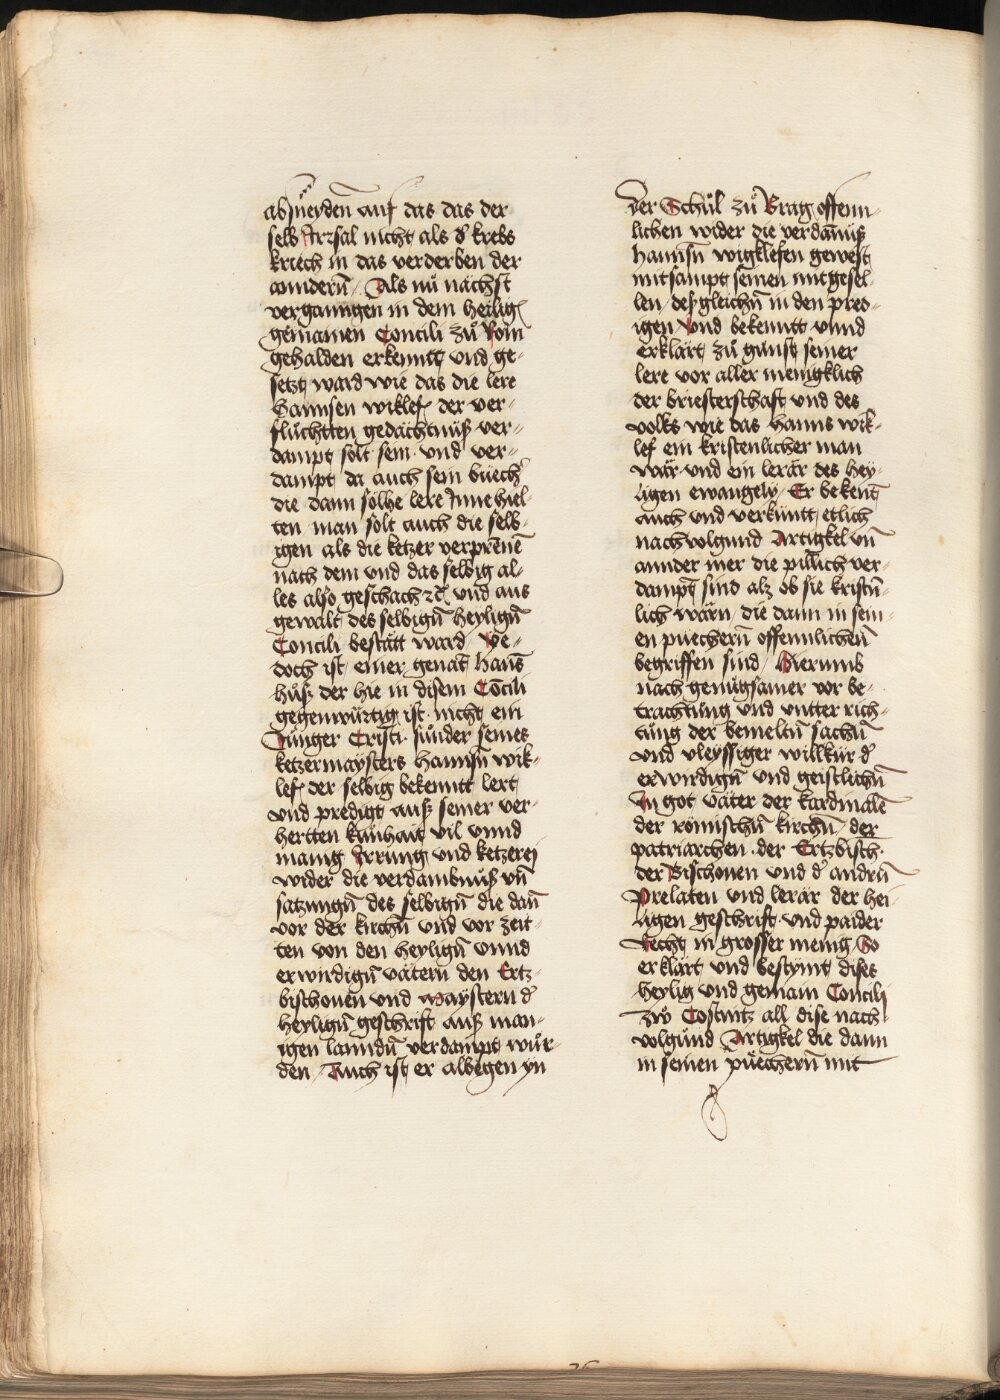 absneyden auf das das der
selb Irrsal nicht als d᷎ krebs
kriech in das verderben der
anndern̄ / Als nů nachst
vergangen in dem heiliḡ
gemainen Concili zů Rom
gehalden erkennt und ge-
setzt ward wie das die lere
Hannsen wiklef der ver-
fluchtten gedachtnuͤß ver-
dampt solt sein · und ver-
dampt da auch sein buech᷎
die dann solhe lere Innehiel-
ten man solt auch die selb-
igen als die ketzer verprēnē
nach dem und das selbig al-
les also geschach ꝛc̄ und aus
gewalt des selbign̄ heylign̄
Concili bestatt ward / Ye-
doch ist einer genāt hanß
huß der hie in disem Cōcili
gegenwürtig ist · nicht ein
Junger Cristi · sunder seines
ketzermaysters Hannsn̄ wik-
lef der selbig bekennt lert
und predigt auß seiner ver-
hertten kůnhait vil unnd
manig Irrung und ketzerej
wider die verdambnuß vn̄
satzungn̄ des selbign̄ die dan̄
vor der kirchn̄ und vor zeit-
ten von den heylign̄ unnd
erwirdign̄ vätern den Ertz-
bischouen und maystern d᷎
heylign̄ geschrift auß man-
igen lanndn̄ verdampt wur-
den / Auch ist er albegen yn
der Schůl zů Brag offenn-
lichen wider die verdamnuß
hannsn̄ wigklefen gewest
mitsampt seinen mitgesel-
len / desgleichn̄ in den pred-
igen Und bekennt unnd
erklart zů gunst seiner
lere vor aller menigklich
der briesterschaft und des
volks wie das Hanns wik-
lef ein kristenlicher man
wär und ein lerär des hey-
ligen ewangelij · Er bekent
auch und verkünt etlich
nachvolgund Artigkel vn̄
annder mer die pillich ver-
dampt sind alz ob sie kristn̄-
lich wärn / die dann in sein-
en puechern̄ offennlichen̄
begriffen sind / Hierumb
nach genůgsamer vor be-
trachtung und unter rich-
tung der bemeltn̄ sachn̄
und vleyssiger willkür d᷎
erwirdign̄ und geistlichn̄
In got väter der kardinalē
der römischn̄ kirchn̄ / der
patriarchen · der Ertzbisch·
der Bischouen und d᷎ andrn̄
Prelaten und lerär der hei-
ligen geschrift · und paider
Recht in grosser menig So
erklärt und bestymt dises
heylig und gemain Concilj
zw Costnitz all dise nach-
volgund Artigkel die dann
in seinen puechern̄ mit